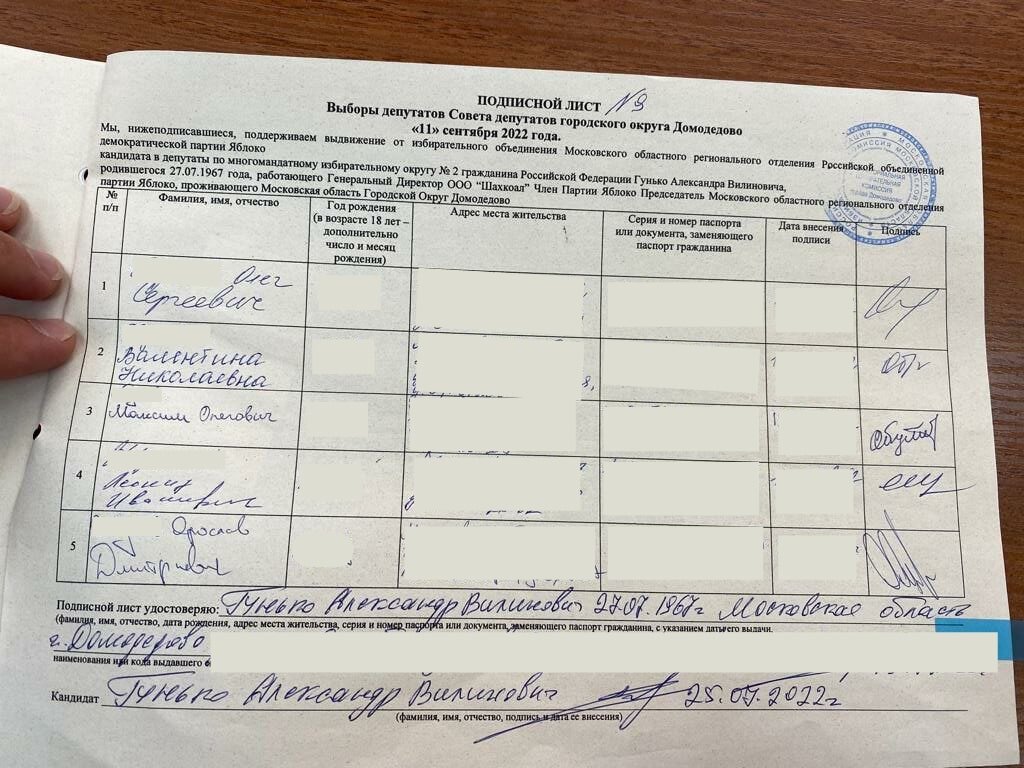 ПОДПИСНОЙ ЛИСТ №9
Выборы депутатов Совета депутатов городского округа Домодедово
«11» сентября 2022 года.
Мы, нижеподписавшиеся, поддерживаем выдвижение от избирательного объединения Московского областного регионального отделения Российской объединенной
демократической партии Яблоко
кандидата в депутаты по многомандатному избирательному округу № 2 гражданина Российской Федерации Гунько Александра Вилиновича,
родившегося 27.07.1967 года, работающего Генеральный Директор ООО "Шахкоал" Член Партии Яблоко Председатель Московского областного регионального отделения
партии Яблоко, проживающего Московская область Городской Округ Домодедово
№ п/п
Фамилия, имя, отчество
Год рождения
(в возрасте 18 лет –
дополнительно
число и месяц
рождения)
Адрес места жительства
Серия и номер паспорта
или документа, заменяющего
паспорт гражданина
Дата внесения
подписи
Подпись
1 Олег
Сергеевич
2 Валентина
Николаевна
3 Максим Олегович
4 Леонид
Иванович
5 Ярослав
Дмитриевич
Подписной лист удостоверяю: Гунько Александр Вилинович 27.07.1967г Московская область
(фамилия, имя, отчество, дата рождения, адрес места жительства, серия и номер паспорта или документа, заменяющего паспорт гражданина, с указанием даты его выдачи,
г. Домодедово
наименования или кода выдавшего
Кандидат Гунько Александр Вилинович 25.07.2022г
(фамилия, имя, отчество, подпись и дата ее внесения)